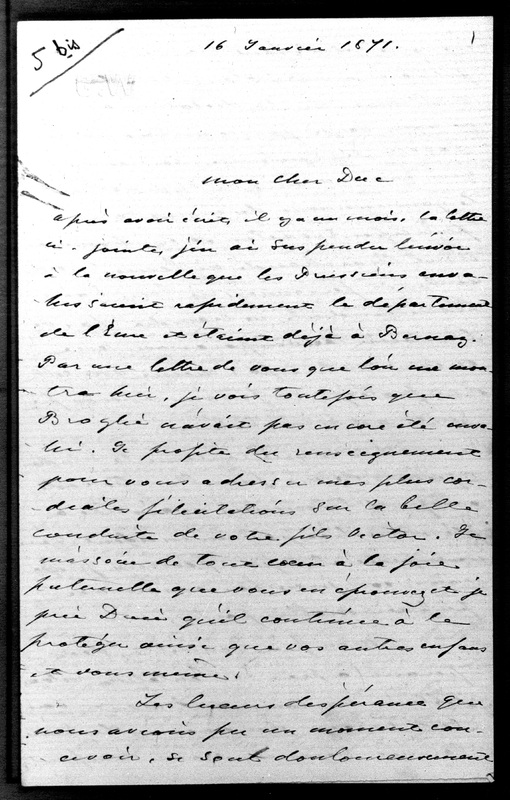 5 bis
16 Janvier 1871.
1
mon cher Duc
après avoir écrit, il y a un mois, la lettre
ci-jointe, j'en ai suspendu l'envoi
à la nouvelle que les Prussiens enva-
hissaient rapidement le département
de l'Eure et étaient déjà à Bernay.
Par une lettre de vous que l'on me mon-
tra hier, je vois toutefois que
Broglie n'avait pas encore été enva-
hi. Je profite du renseignement
pour vous adresser mes plus cor-
diales félicitations sur la belle
conduite de votre fils Victor. Je
m'associe de tout cœur à la joie
paternelle que vous en éprouvez et je
prie Dieu qu'il continue à le
protéger ainsi que vos autres enfans
et vous même.
Les lueurs d'espérance que
nous avions pu un moment con-
cevoir, se sont douloureusement